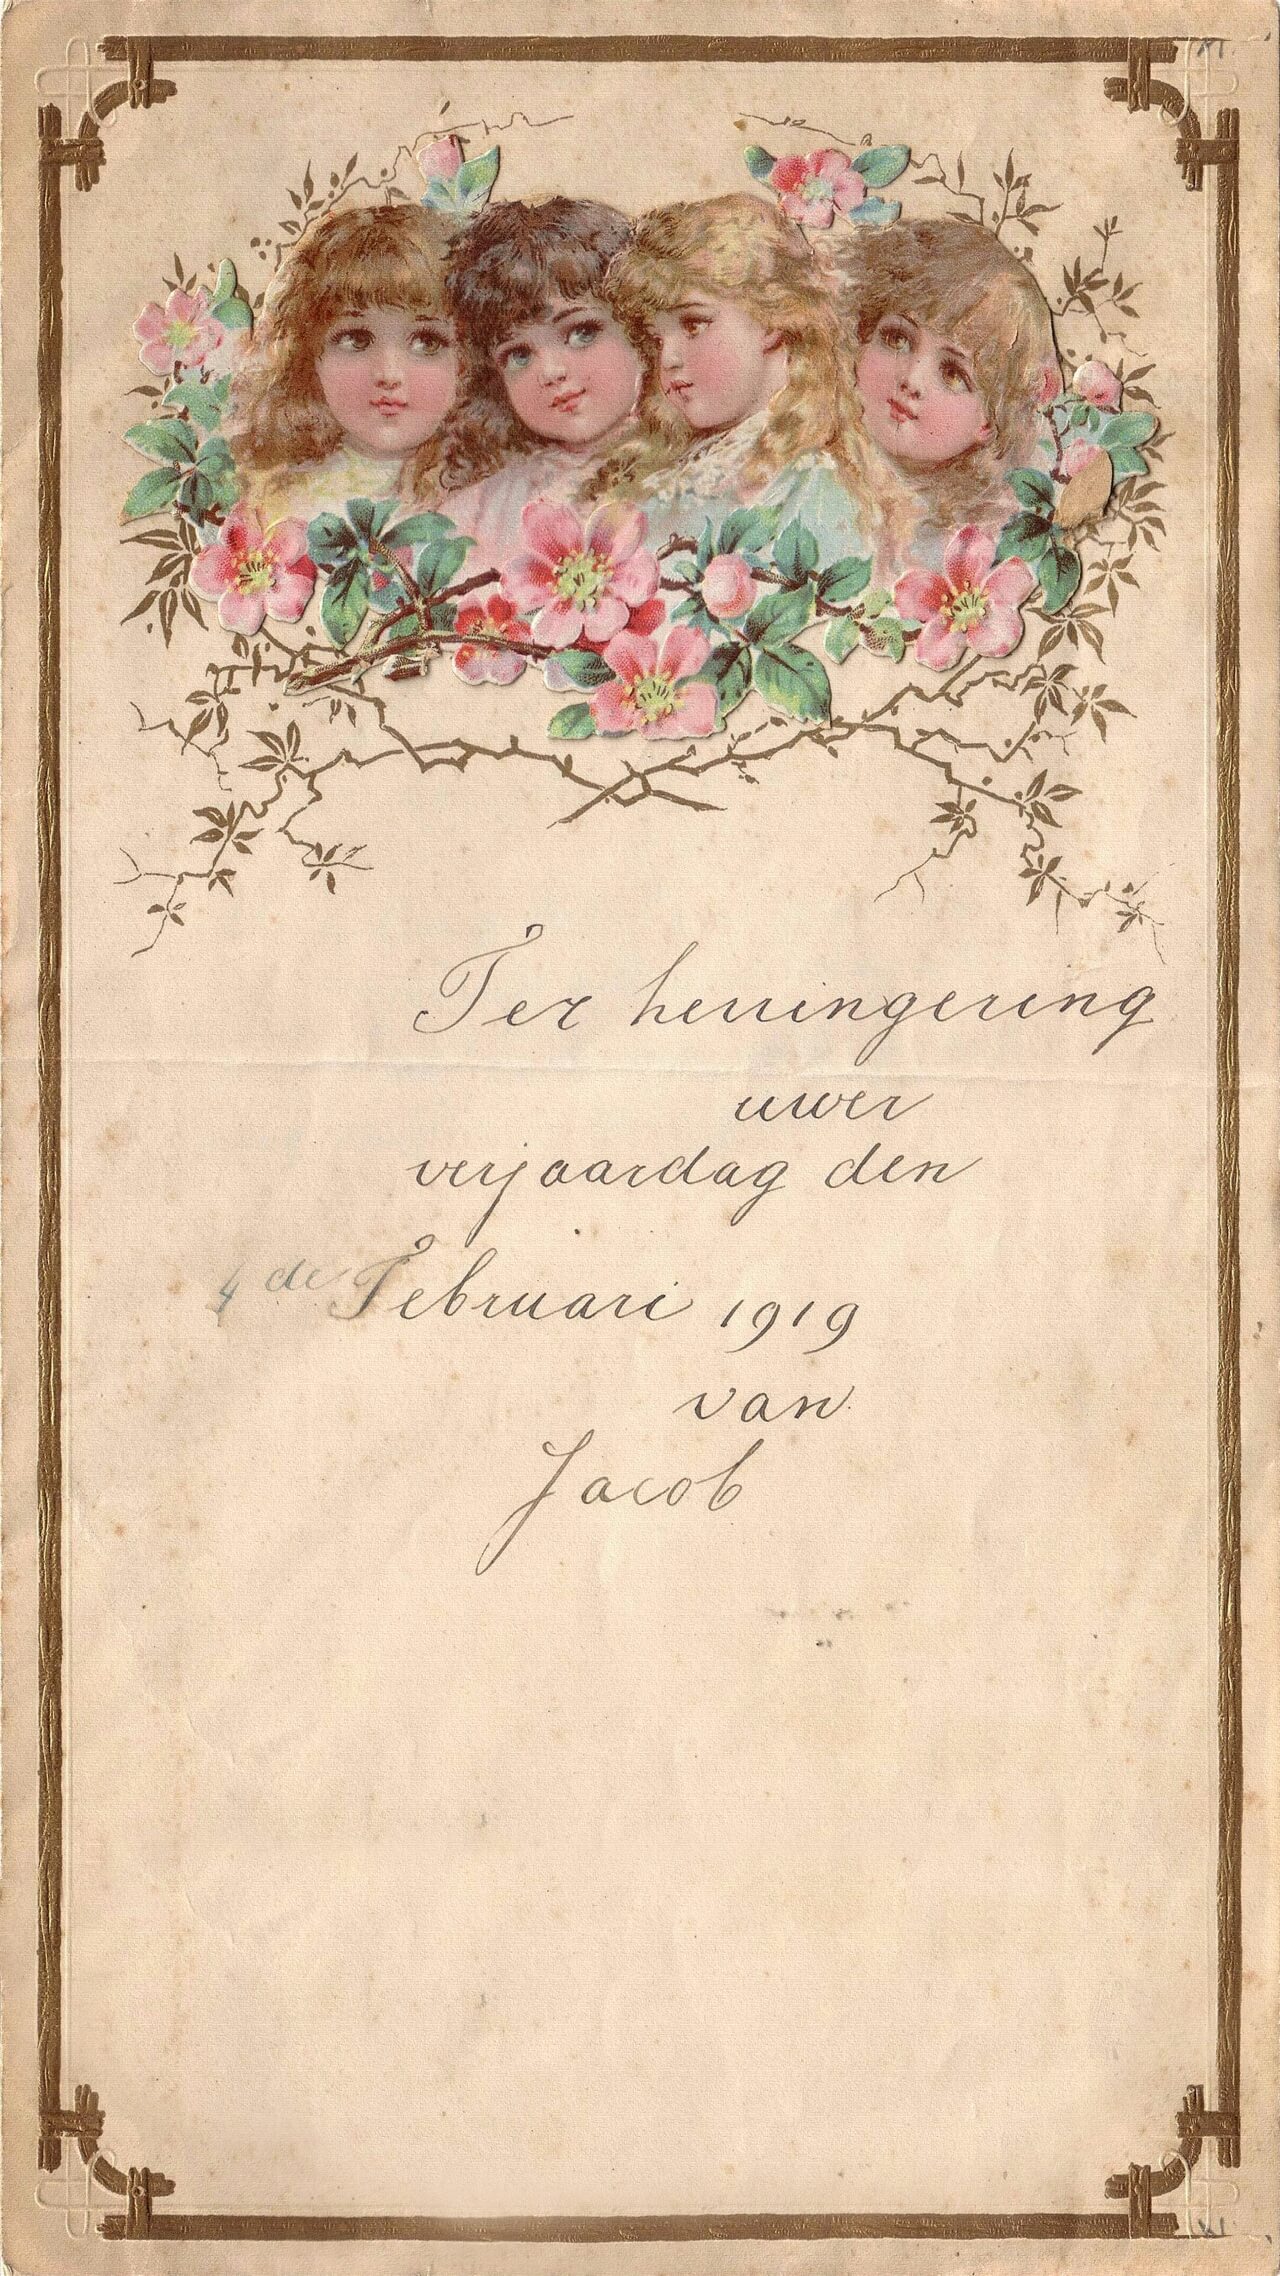 Ter herringering
uwer
verjaardag den
4 de Februari 1919
van
Jacob